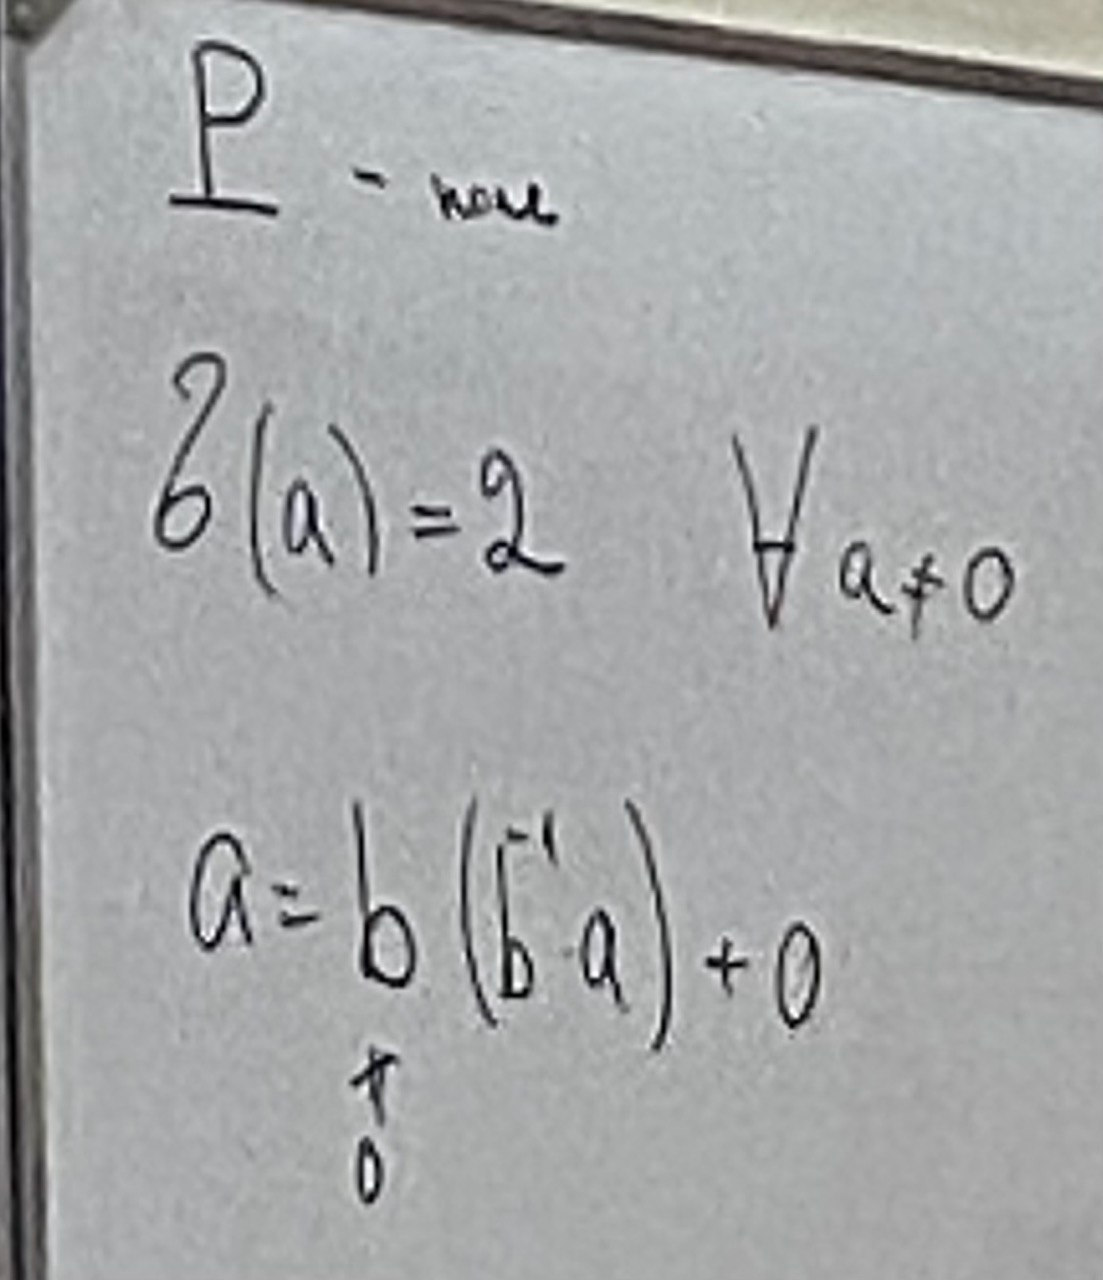 P - поле
δ(a) = 2 ∀ a ≠ 0
a = b (b⁻¹ · a) + 0
≠
0